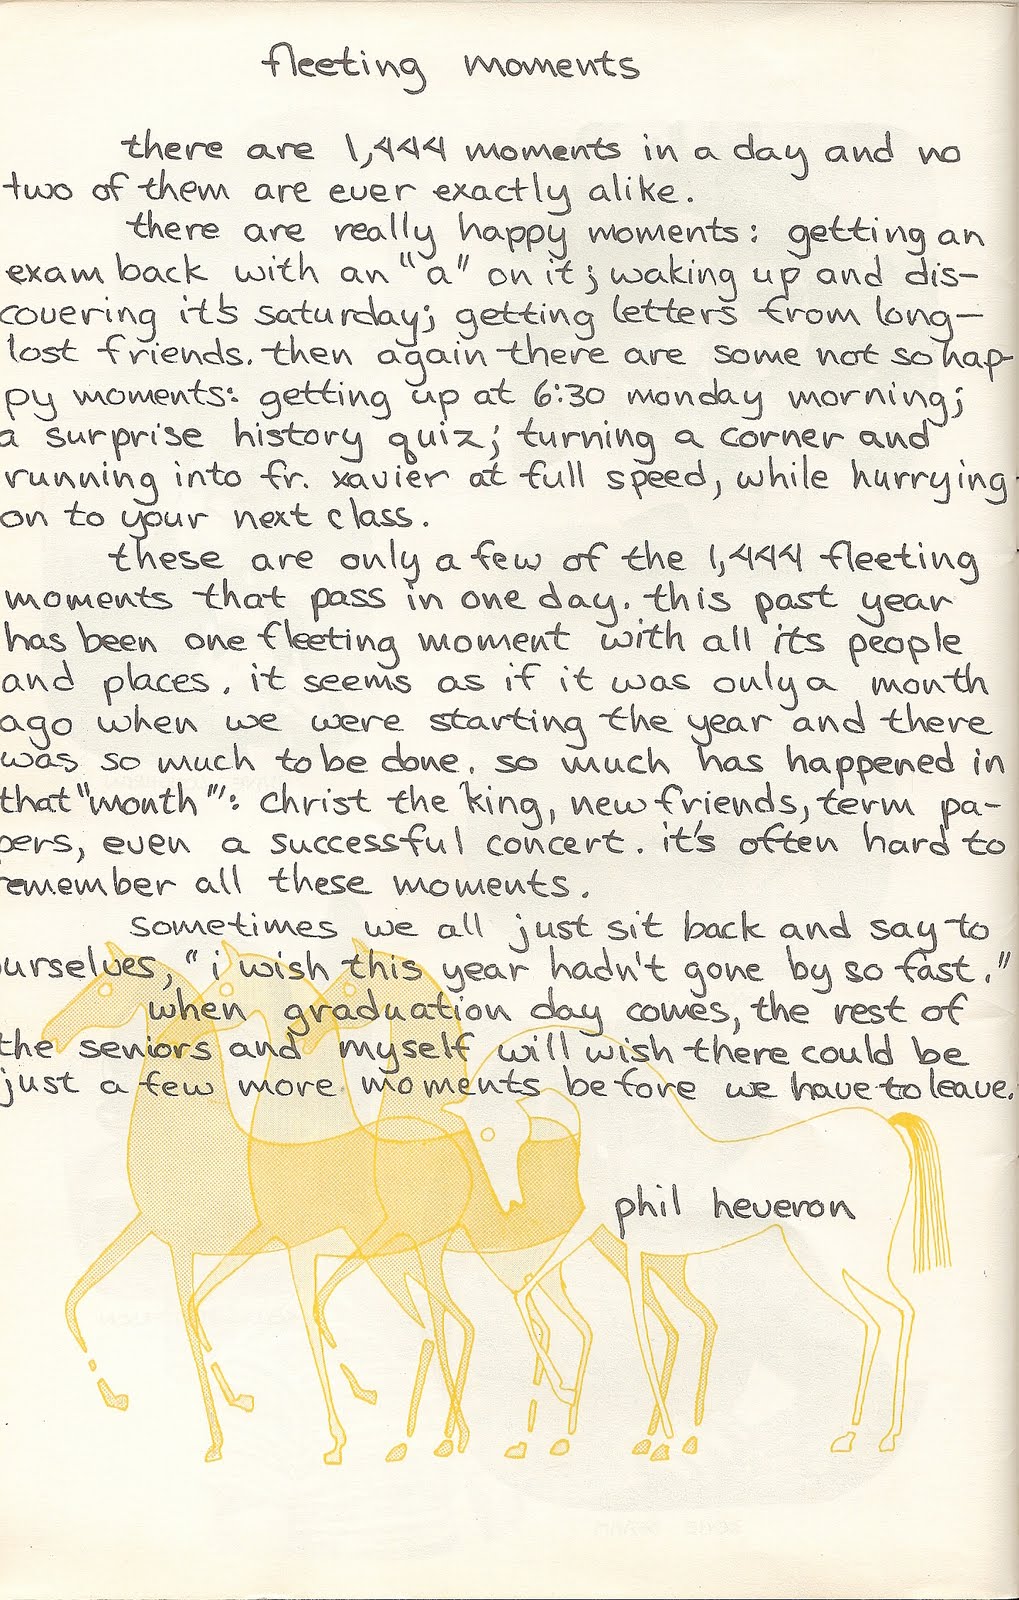 fleeting moments
there are 1,444 moments in a day and no
two of them are ever exactly alike.
there are really happy moments: getting an
exam back with an "a" on it; waking up and dis-
covering it's saturday; getting letters from long-
lost friends. then again there are some not so hap-
py moments: getting up at 6:30 monday morning;
a surprise history quiz; turning a corner and
running into fr. xavier at full speed, while hurrying
on to your next class.
these are only a few of the 1,444 fleeting
moments that pass in one day. this past year
has been one fleeting moment with all its people
and places. it seems as if it was only a month
ago when we were starting the year and there
was so much to be done. so much has happened in
that "month": christ the king, new friends, term pa-
pers, even a successful concert. it's often hard to
remember all these moments.
sometimes we all just sit back and say to
ourselves, "i wish this year hadn't gone by so fast."
when graduation day comes, the rest of
the seniors and myself will wish there could be
just a few more moments before we have to leave.
phil heveron